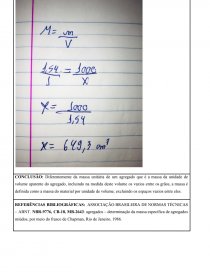 M = m
V
1,54 = 1000
1 X
X = 1000
1,54
X = 649,3 cm³
CONCLUSÃO: Diferentemente da massa unitária de um agregado que é a massa da unidade de
volume aparente do agregado, incluindo na medida deste volume os vazios entre os grãos, a massa é
definida como a massa do material por unidade de volume, excluindo os espaços vazios entre eles.
REFERÊNCIAS BIBLIOGRÁFICAS: ASSOCIAÇÃO BRASILEIRA DE NORMAS TÉCNICAS
– ABNT. NBR-9776, CB-18, MB-2643: agregados – determinação da massa específica de agregados
miúdos por meio do frasco de Chapman, Rio de Janeiro, 1986